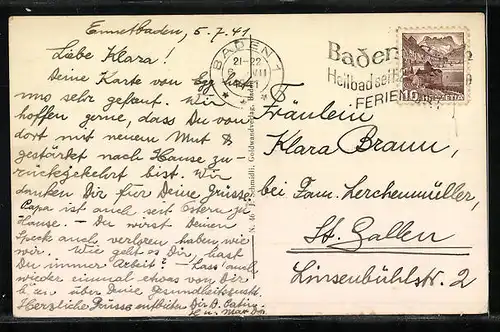 Ennetbaden, 5.7.41
Liebe Klara!
Deine Karte von hat
uns sehr gefreut. Wir
hoffen gerne, dass Du von
dort mit neuem Mut &
gestärkt nach Hause zu-
rückgekehrt bist. Wir
danken Dir für Deine Grüsse.
Papa ist auch seit Ostern zu
Hause. - Du wirst Deinen
Speck auch verloren haben, wie
wir. Wie geht es Dir, hast
Du immer Arbeit? - Lass auch
wieder einmal etwas von Dir
hören über Deine
Herzliche Grüsse entbieten Dir
BADEN 1
21-22
VII
Baden
Heilbad seit
FERIEN
10 HELVETIA
Fräulein
Klara Braun,
bei Fam. Lerchenmüller,
St. Gallen
Linsenbühlstr. 2